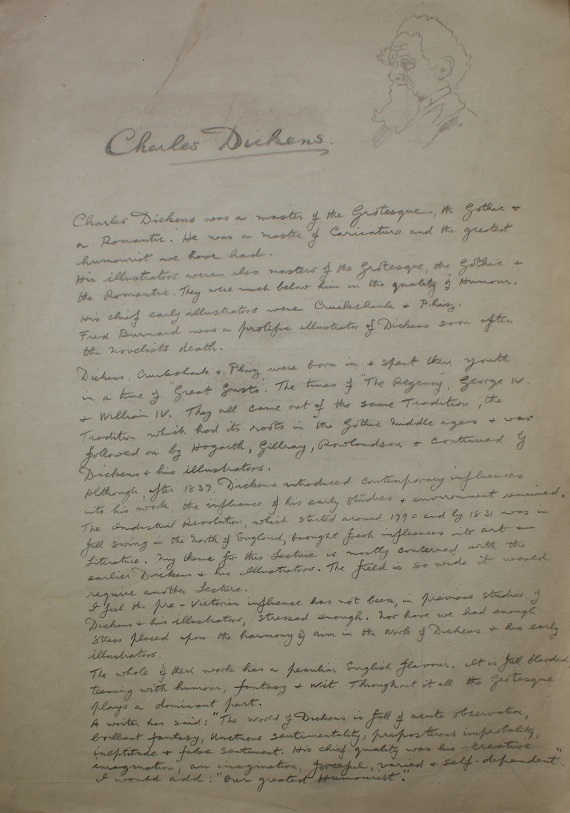 Charles Dickens.
Charles Dickens was a master of the Grotesque, the Gothic +
a Romantic. He was a master of Caricature and the greatest
humourist we have had.
His illustrators were also masters of the Grotesque, the Gothic +
the Romantic. They were much below him in the quality of Humour.
His chief early illustrators were Cruikshank + Phiz.
Fred Barnard was a prolific illustrator of Dickens soon after
the novelists death.
Dickens, Cruikshank + Phiz were born in + spent their youth
in a time of "Great Gusto". The times of "The Regency", George IV.
+ William IV. They all came out of the same Tradition, the
Tradition which had its roots in the Gothic Middle ages + was
followed on by Hogarth, Gillray, Rowlandson + continued by
Dickens + his illustrators.
Although after 1837, Dickens introduced contemporary influences
into his work, the influence of his early studies + environment remained.
The Industrial Revolution, which started around 1790 and by 1831 was in
full swing in the North of England, brought fresh influences into art +
Literature. My theme for this Lecture is mostly concerned with the
earlier Dickens + his illustrators. The field is so wide it would
require another Lecture.
I feel the pre-Victorian influence has not been, in previous studies of
Dickens + his illustrators, stressed enough. Nor have we had enough
stress placed upon the harmony of aim in the Work of Dickens + his early
illustrators.
The whole of their work has a peculiar English flavour. It is full blooded,
teeming with humour, fantasy + wit. Throughout it all the Grotesque
plays a dominant part.
A writer has said: "The World of Dickens is full of acute observation,
brilliant fantasy, unctuous sentimentality, preposterous improbability,
ineptitude + false sentiment. His chief quality was his creative
imagination, an imagination, forceful, varied + self-dependent."
I would add: "Our greatest Humourist".